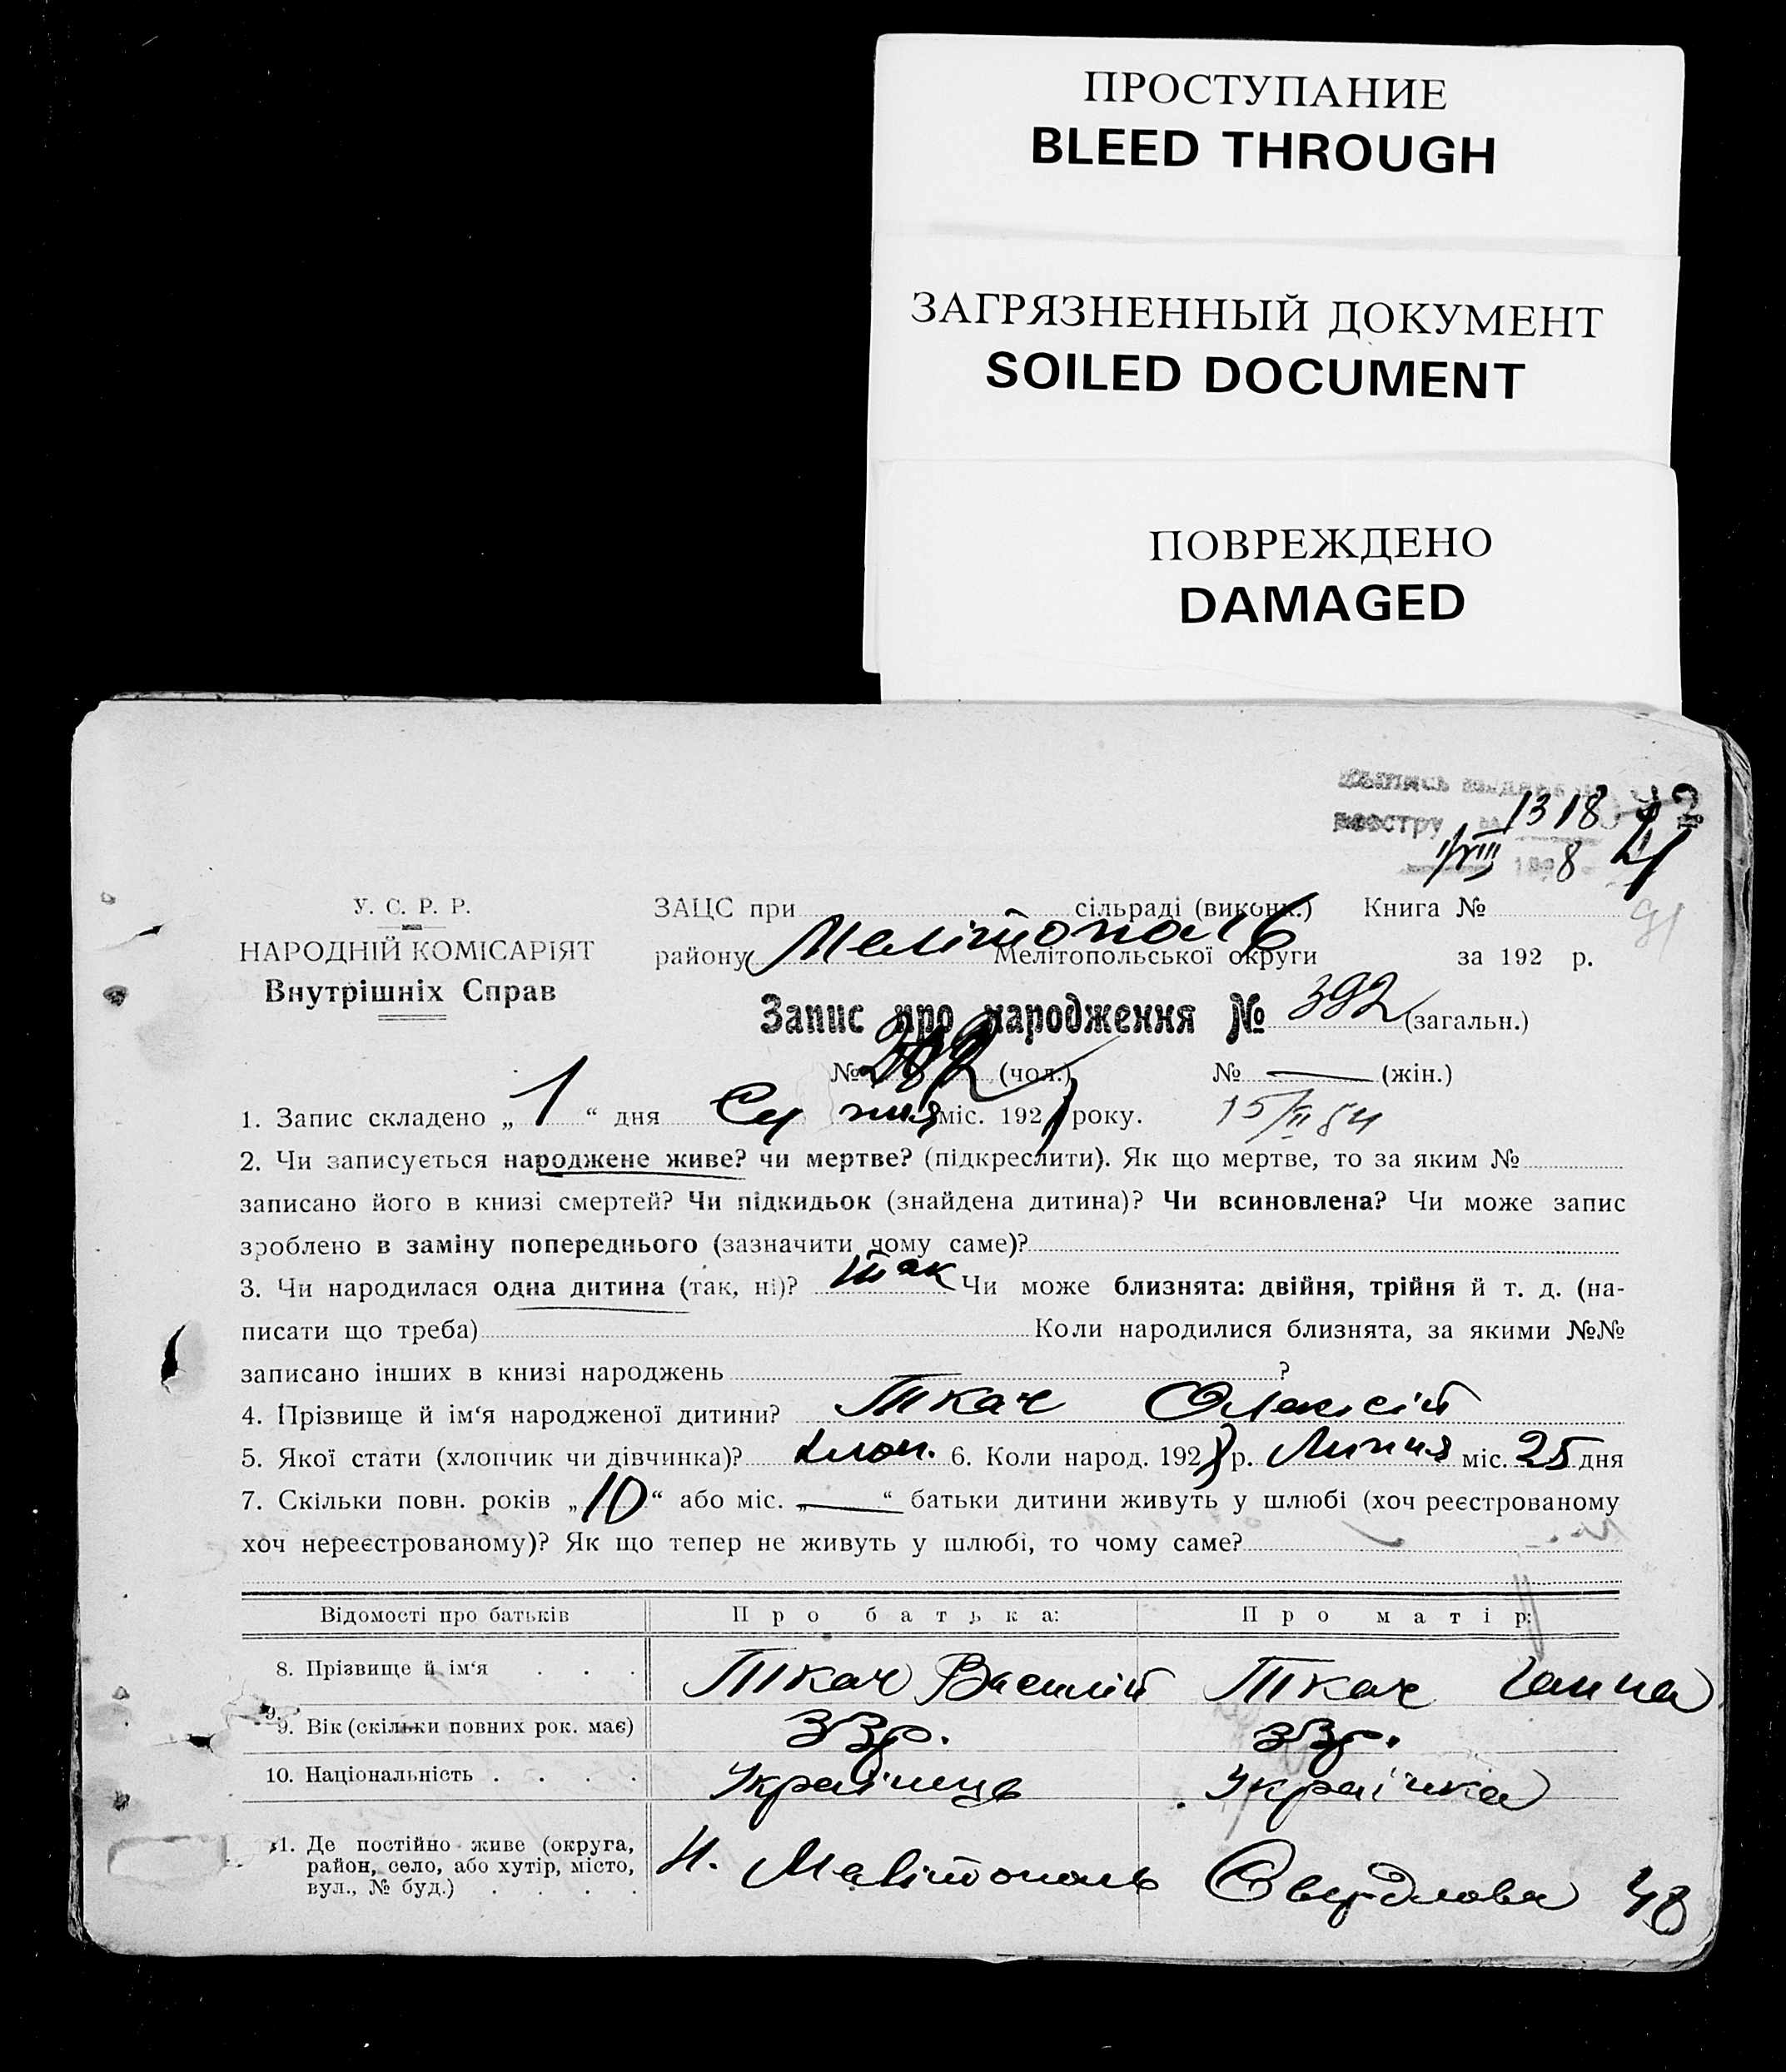 ПРОСТУПАНИЕ
BLEED THROUGH
ЗАГРЯЗНЕННЫЙ ДОКУМЕНТ
SOILED DOCUMENT
ПОВРЕЖДЕНО
DAMAGED
1318
реестру
1/VIII 8
У. С. Р. Р.
НАРОДНІЙ КОМІСАРІЯТ
Внутрішніх Справ
ЗАЦС при сільраді (виконк.) Книга №
району Мелітополь Мелітопольської округи за 192 р.
Запис про народження № 392 (загальн.)
№ (чол.) № — (жін.)
1. Запис складено „ 1 “ дня Серпня міс. 192 року. 15/II 84
2. Чи записується народжене живе? чи мертве? (підкреслити). Як що мертве, то за яким №
записано його в книзі смертей? Чи підкидьок (знайдена дитина)? Чи всиновлена? Чи може запис
зроблено в заміну попереднього (зазначити чому саме)?
3. Чи народилася одна дитина (так, ні)? так Чи може близнята: двійня, трійня й т. д. (на-
писати що треба) Коли народилися близнята, за якими №№
записано інших в книзі народжень ?
4. Прізвище й ім'я народженої дитини? Ткач Олексій
5. Якої стати (хлопчик чи дівчинка)? хлоп. 6. Коли народ. 192 р. Липня міс. 25 дня
7. Скільки повн. років „ 10 “ або міс. „ — “ батьки дитини живуть у шлюбі (хоч реєстрованому
хоч нереєстрованому)? Як що тепер не живуть у шлюбі, то чому саме?
Відомості про батьків Про батька: Про матір:
8. Прізвище й ім'я . . . Ткач Василій Ткач Ганна
9. Вік (скільки повних рок. має) 33 р. 33 р.
10. Національність . . . . Українець Українка
11. Де постійно живе (округа, район, село, або хутір, місто, вул., № буд.) . . . . М. Мелітополь Свердлова 48